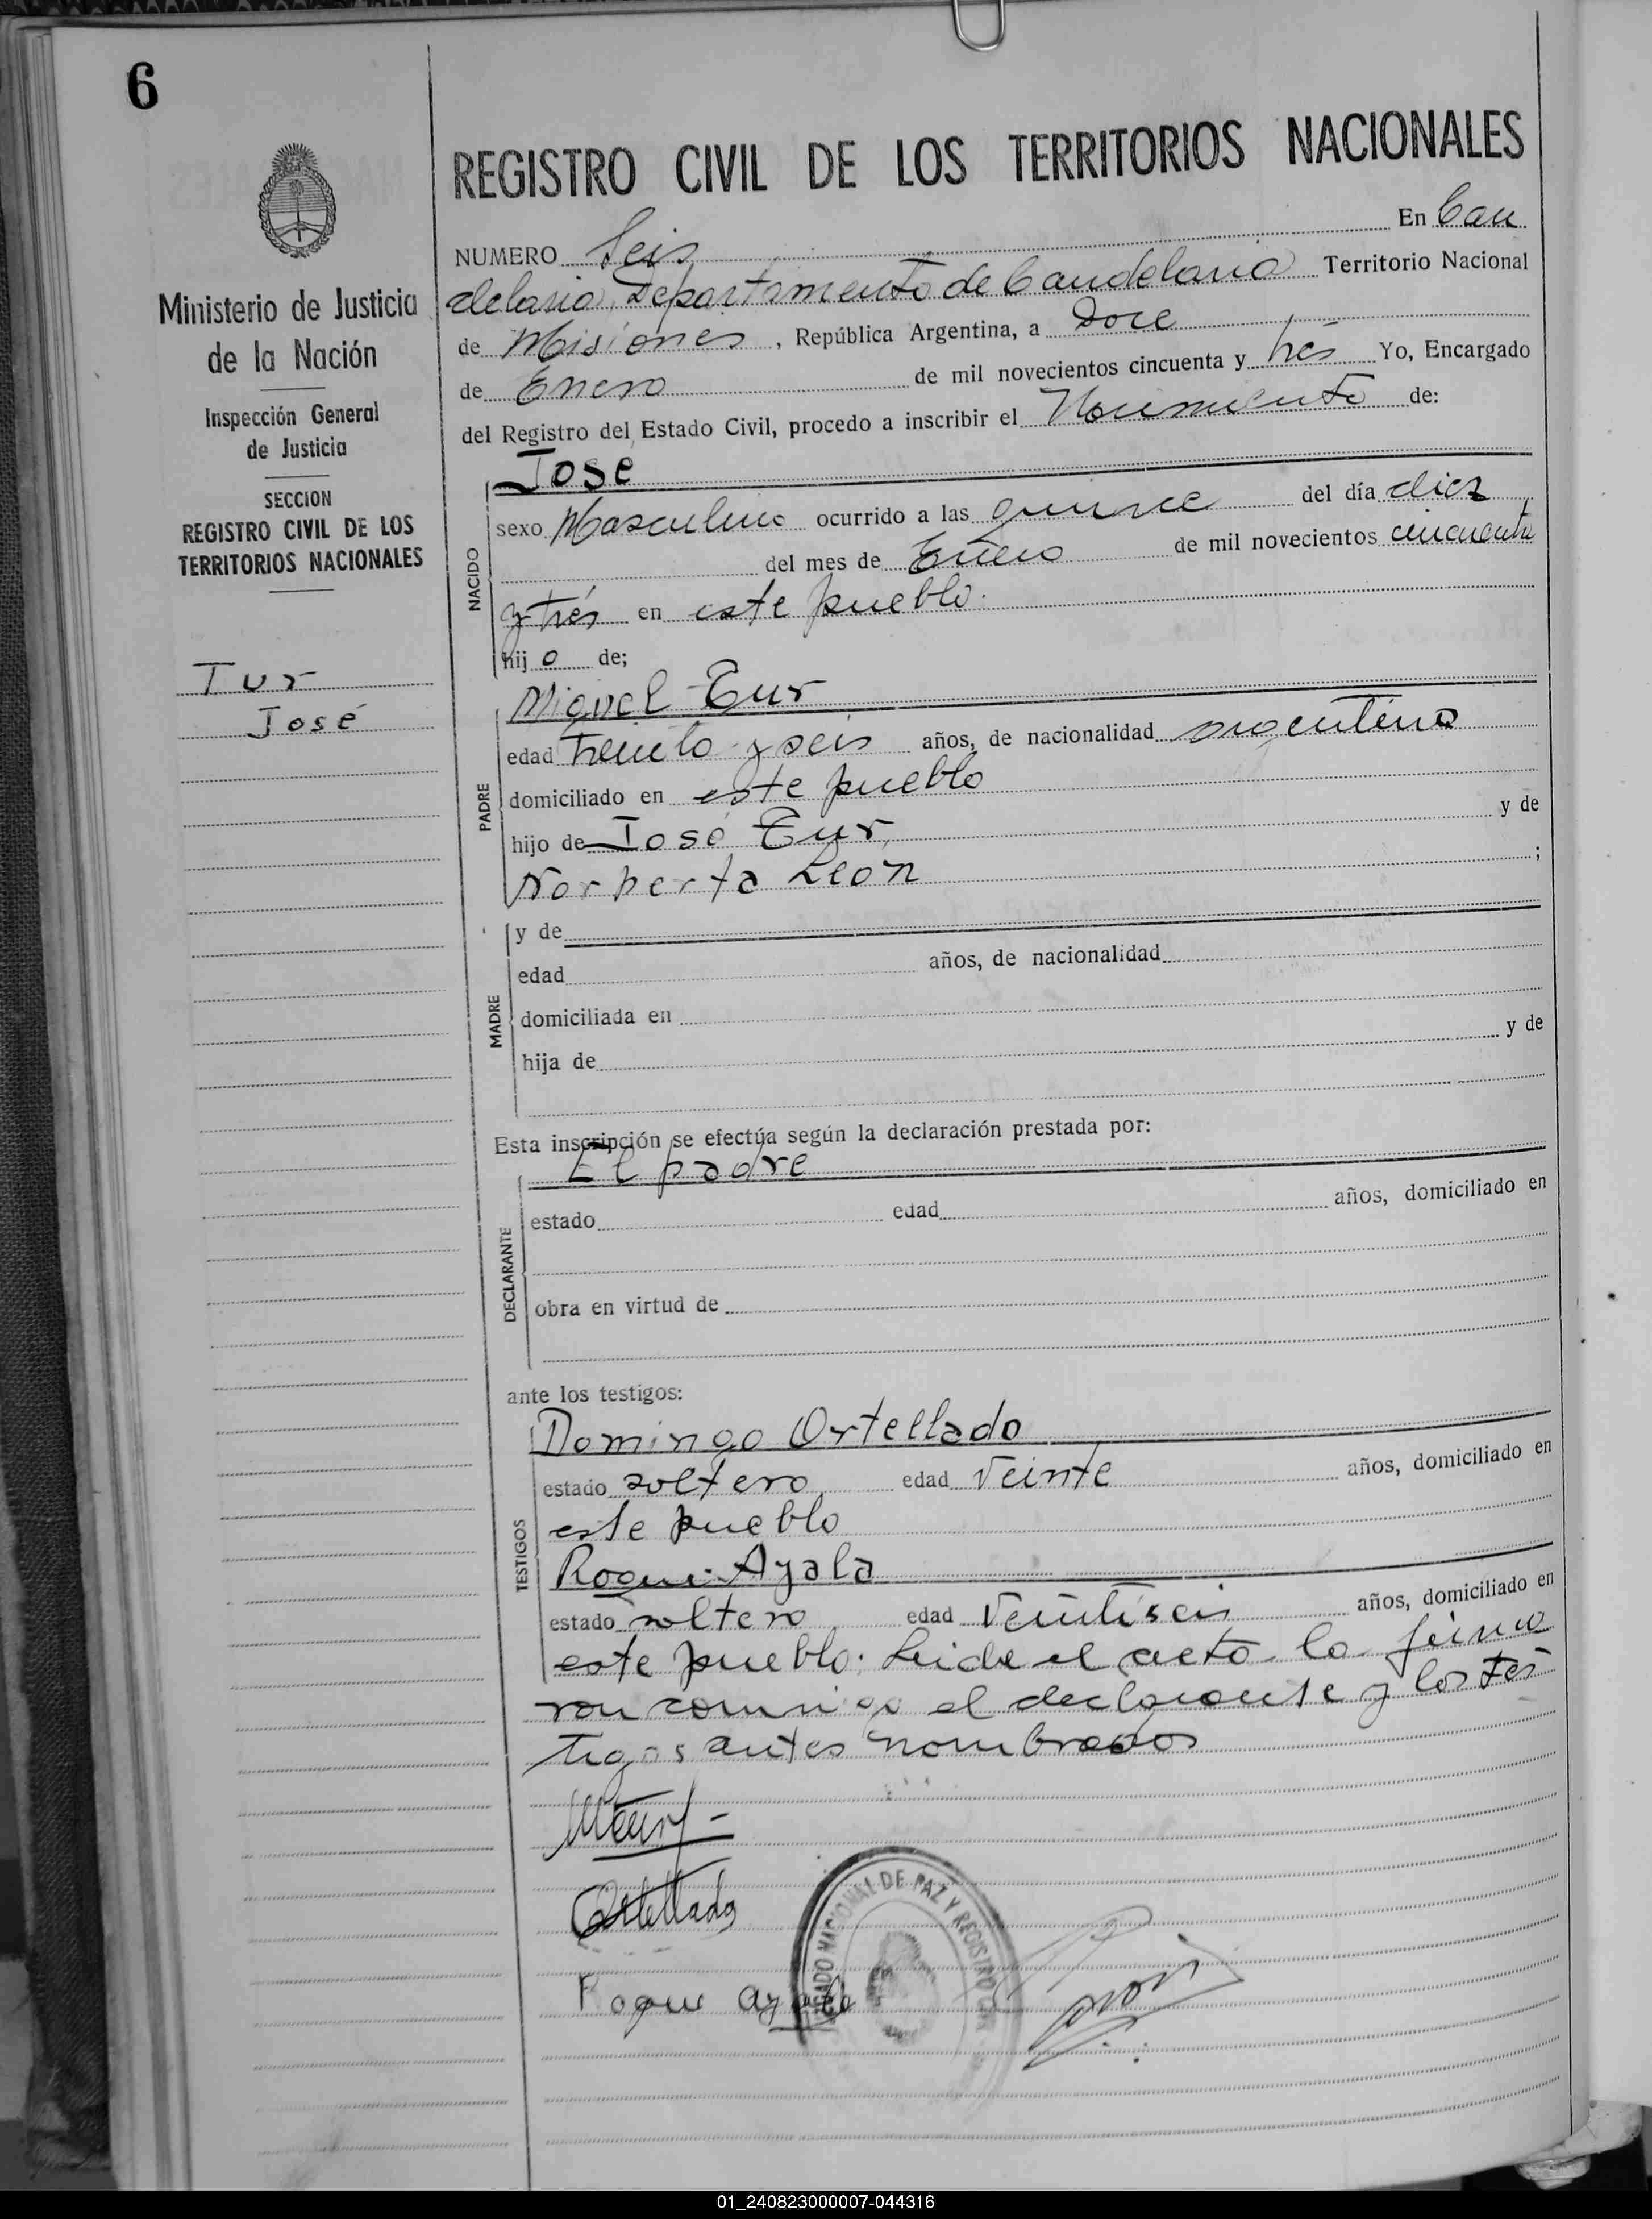 6
REGISTRO CIVIL DE LOS TERRITORIOS NACIONALES
Ministerio de Justicia
de la Nación
Inspección General
de Justicia
SECCION
REGISTRO CIVIL DE LOS
TERRITORIOS NACIONALES
Tur
José
NUMERO Seis En Can
delaria, Departamento de Candelaria Territorio Nacional
de Misiones, República Argentina, a Doce
de Enero de mil novecientos cincuenta y trés Yo, Encargado
del Registro del Estado Civil, procedo a inscribir el Nacimiento de:
José
NACIDO
sexo Masculino ocurrido a las quince del día diez
del mes de Enero de mil novecientos cincuenta
y trés en este pueblo.
hij o de;
Miguel Tur
PADRE
edad treinta y seis años, de nacionalidad argentina
domiciliado en este pueblo
hijo de José Tur, y de
Norberta León ;
y de
MADRE
edad años, de nacionalidad
domiciliada en
hija de y de
Esta inscripción se efectúa según la declaración prestada por:
El padre
DECLARANTE
estado edad años, domiciliado en
obra en virtud de
ante los testigos:
Domingo Ortellado
TESTIGOS
estado soltero edad Veinte años, domiciliado en
este pueblo
Roque Ayala
estado soltero edad Veintiseis años, domiciliado en
este pueblo. Leida el acta la firma
ron conmigo el declarante y los tes
tigos antes nombrados
MTur
Ortellado
Roque Ayala
JUZGADO NACIONAL DE PAZ Y REGISTRO CIVIL
01_240823000007-044316